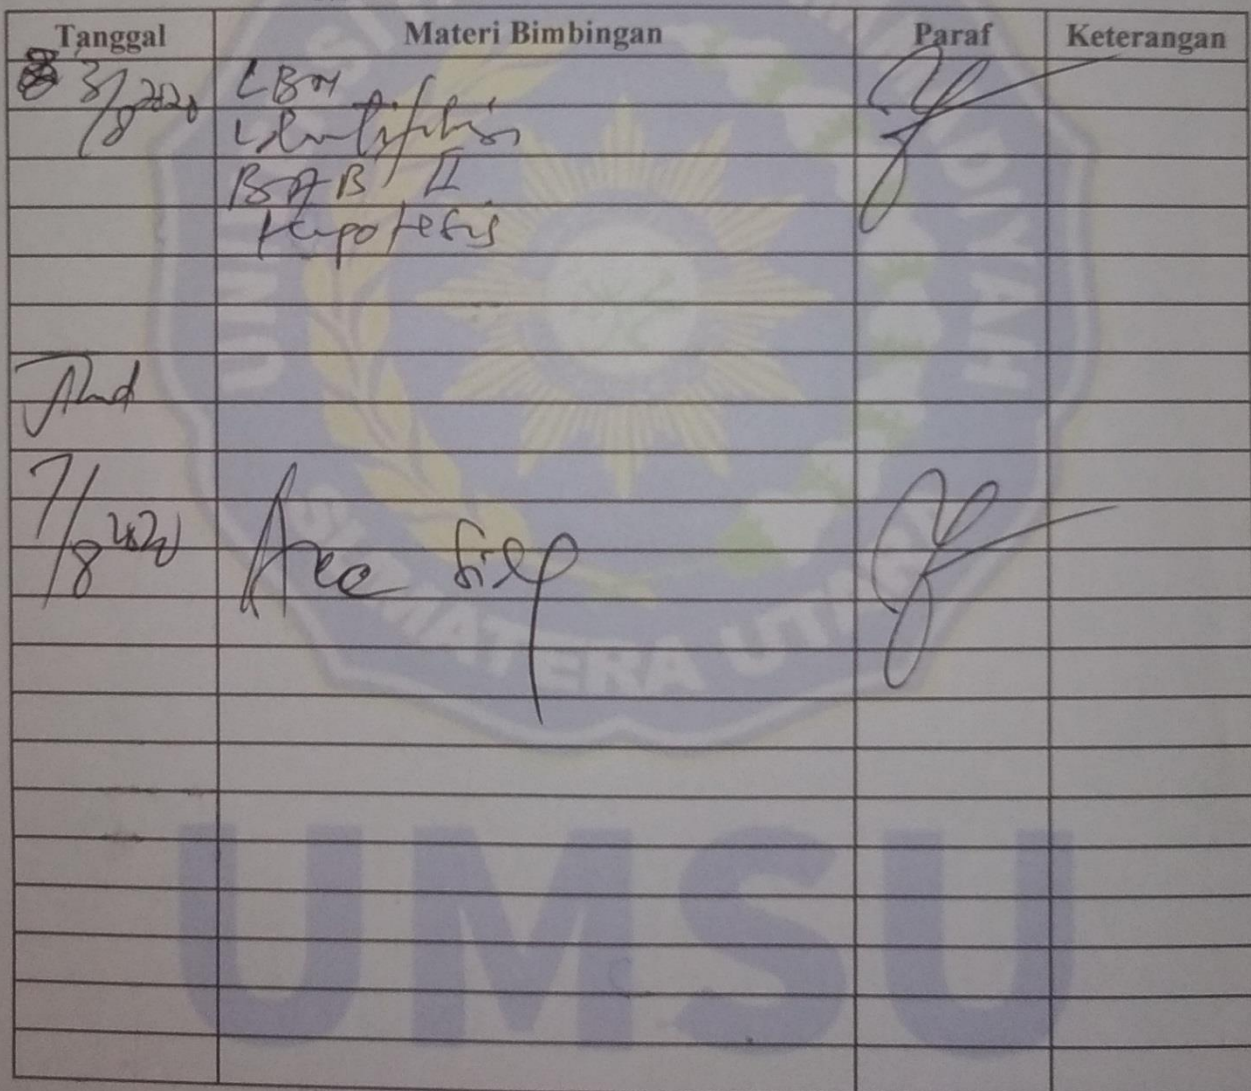 Tanggal Materi Bimbingan Paraf Keterangan
3/8 2020 LBM
Identifikasi
BAB II
Hipotesis
7/8 2020 Acc
UMSU
SUMATERA UTARA